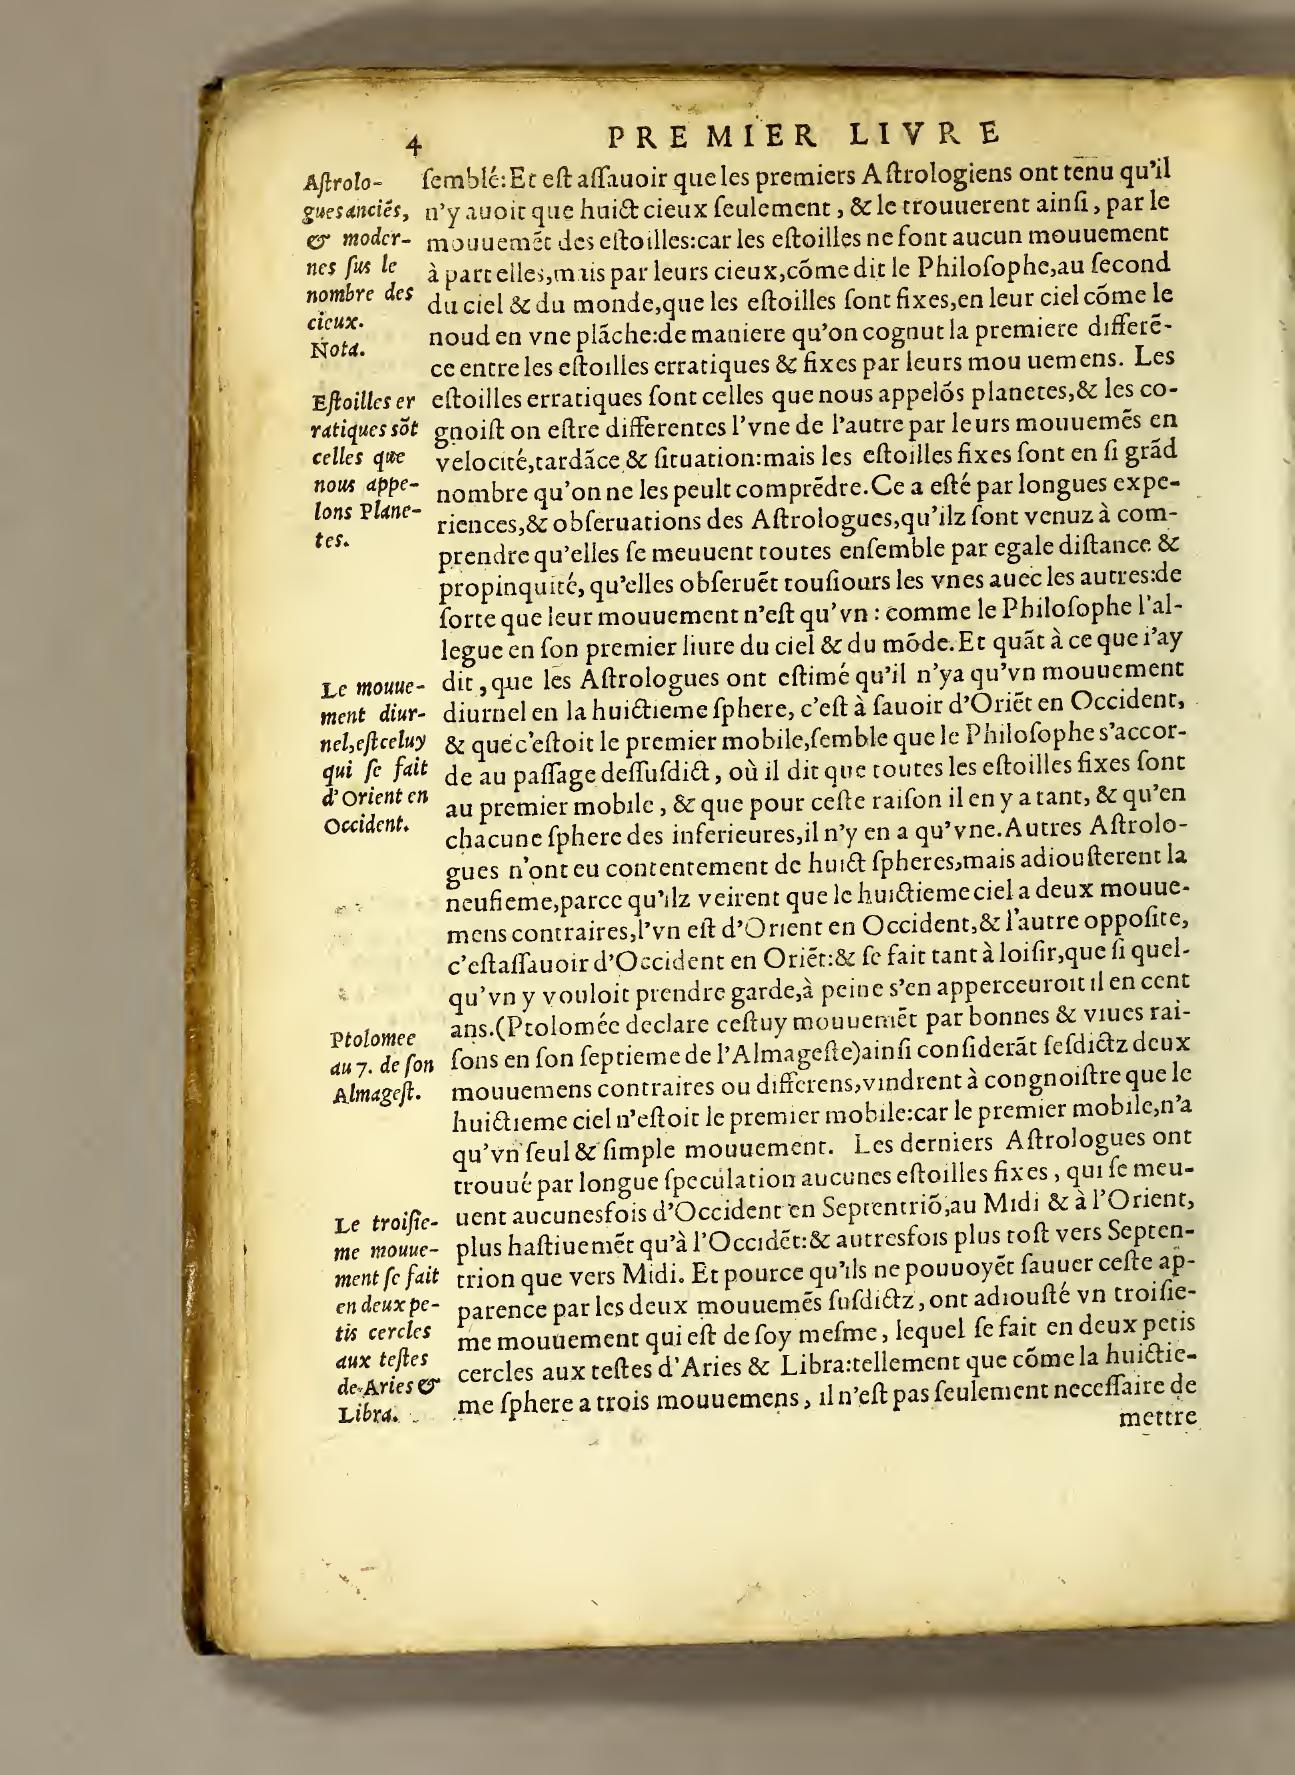 4 PREMIER LIVRE
Aſtrolo-
gues anciẽs,
& moder-
nes ſus le
nombre des
cieux.
Nota.
Eſtoilles er
ratiques sõt
celles que
nous appe-
lons Plane-
tes.
Le mouue-
ment diur-
nel, eſt celuy
qui ſe fait
d'Orient en
Occident.
Ptolomee
au 7. de ſon
Almageſt.
Le troiſie-
me mouue-
ment ſe fait
en deux pe-
tis cercles
aux teſtes
de Aries &
Libra.
ſemblé: Et eſt aſſauoir que les premiers Aſtrologiens ont tenu qu'il
n'y auoit que huict cieux ſeulement, & le trouuerent ainſi, par le
mouuemẽt des eſtoilles: car les eſtoilles ne font aucun mouuement
à part elles, mais par leurs cieux, cõme dit le Philoſophe, au ſecond
du ciel & du monde, que les eſtoilles ſont fixes, en leur ciel cõme le
noud en vne plãche: de maniere qu'on cognut la premiere differẽ-
ce entre les eſtoilles erratiques & fixes par leurs mou uemens. Les
eſtoilles erratiques ſont celles que nous appelõs planetes, & les co-
gnoiſt on eſtre differentes l'vne de l'autre par leurs mouuemẽs en
velocité, tardãce & ſituation: mais les eſtoilles fixes ſont en ſi grãd
nombre qu'on ne les peult comprẽdre. Ce a eſté par longues expe-
riences, & obſeruations des Aſtrologues, qu'ilz ſont venuz à com-
prendre qu'elles ſe meuuent toutes enſemble par egale diſtance &
propinquité, qu'elles obſeruẽt touſiours les vnes auec les autres: de
ſorte que leur mouuement n'eſt qu'vn : comme le Philoſophe l'al-
legue en ſon premier liure du ciel & du mõde. Et quãt à ce que i'ay
dit, que les Aſtrologues ont eſtimé qu'il n'ya qu'vn mouuement
diurnel en la huictieme ſphere, c'eſt à ſauoir d'Oriẽt en Occident,
& que c'eſtoit le premier mobile, ſemble que le Philoſophe s'accor-
de au paſſage deſſuſdict, où il dit que toutes les eſtoilles fixes ſont
au premier mobile, & que pour ceſte raiſon il en y a tant, & qu'en
chacune ſphere des inferieures, il n'y en a qu'vne. Autres Aſtrolo-
gues n'ont eu contentement de huict ſpheres, mais adiouſterent la
neufieme, parce qu'ilz veirent que le huictieme ciel a deux mouue-
mens contraires, l'vn eſt d'Orient en Occident, & l'autre oppoſite,
c'eſt aſſauoir d'Occident en Oriẽt: & ſe fait tant à loiſir, que ſi quel-
qu'vn y vouloit prendre garde, à peine s'en apperceuroit il en cent
ans. (Ptolomée declare ceſtuy mouuemẽt par bonnes & viues rai-
ſons en ſon ſeptieme de l'Almageſte) ainſi conſiderãt ſeſdictz deux
mouuemens contraires ou differens, vindrent à congnoiſtre que le
huictieme ciel n'eſtoit le premier mobile: car le premier mobile, n'a
qu'vn ſeul & ſimple mouuement. Les derniers Aſtrologues ont
trouué par longue ſpeculation aucunes eſtoilles fixes, qui ſe meu-
uent aucunesfois d'Occident en Septentriõ, au Midi & à l'Orient,
plus haſtiuemẽt qu'à l'Occidẽt: & autresfois plus toſt vers Septen-
trion que vers Midi. Et pource qu'ils ne pouuoyẽt ſauuer ceſte ap-
parence par les deux mouuemẽs ſuſdictz, ont adiouſté vn troiſie-
me mouuement qui eſt de ſoy meſme, lequel ſe fait en deux petis
cercles aux teſtes d'Aries & Libra: tellement que cõme la huictie-
me ſphere a trois mouuemens, il n'eſt pas ſeulement neceſſaire de
mettre